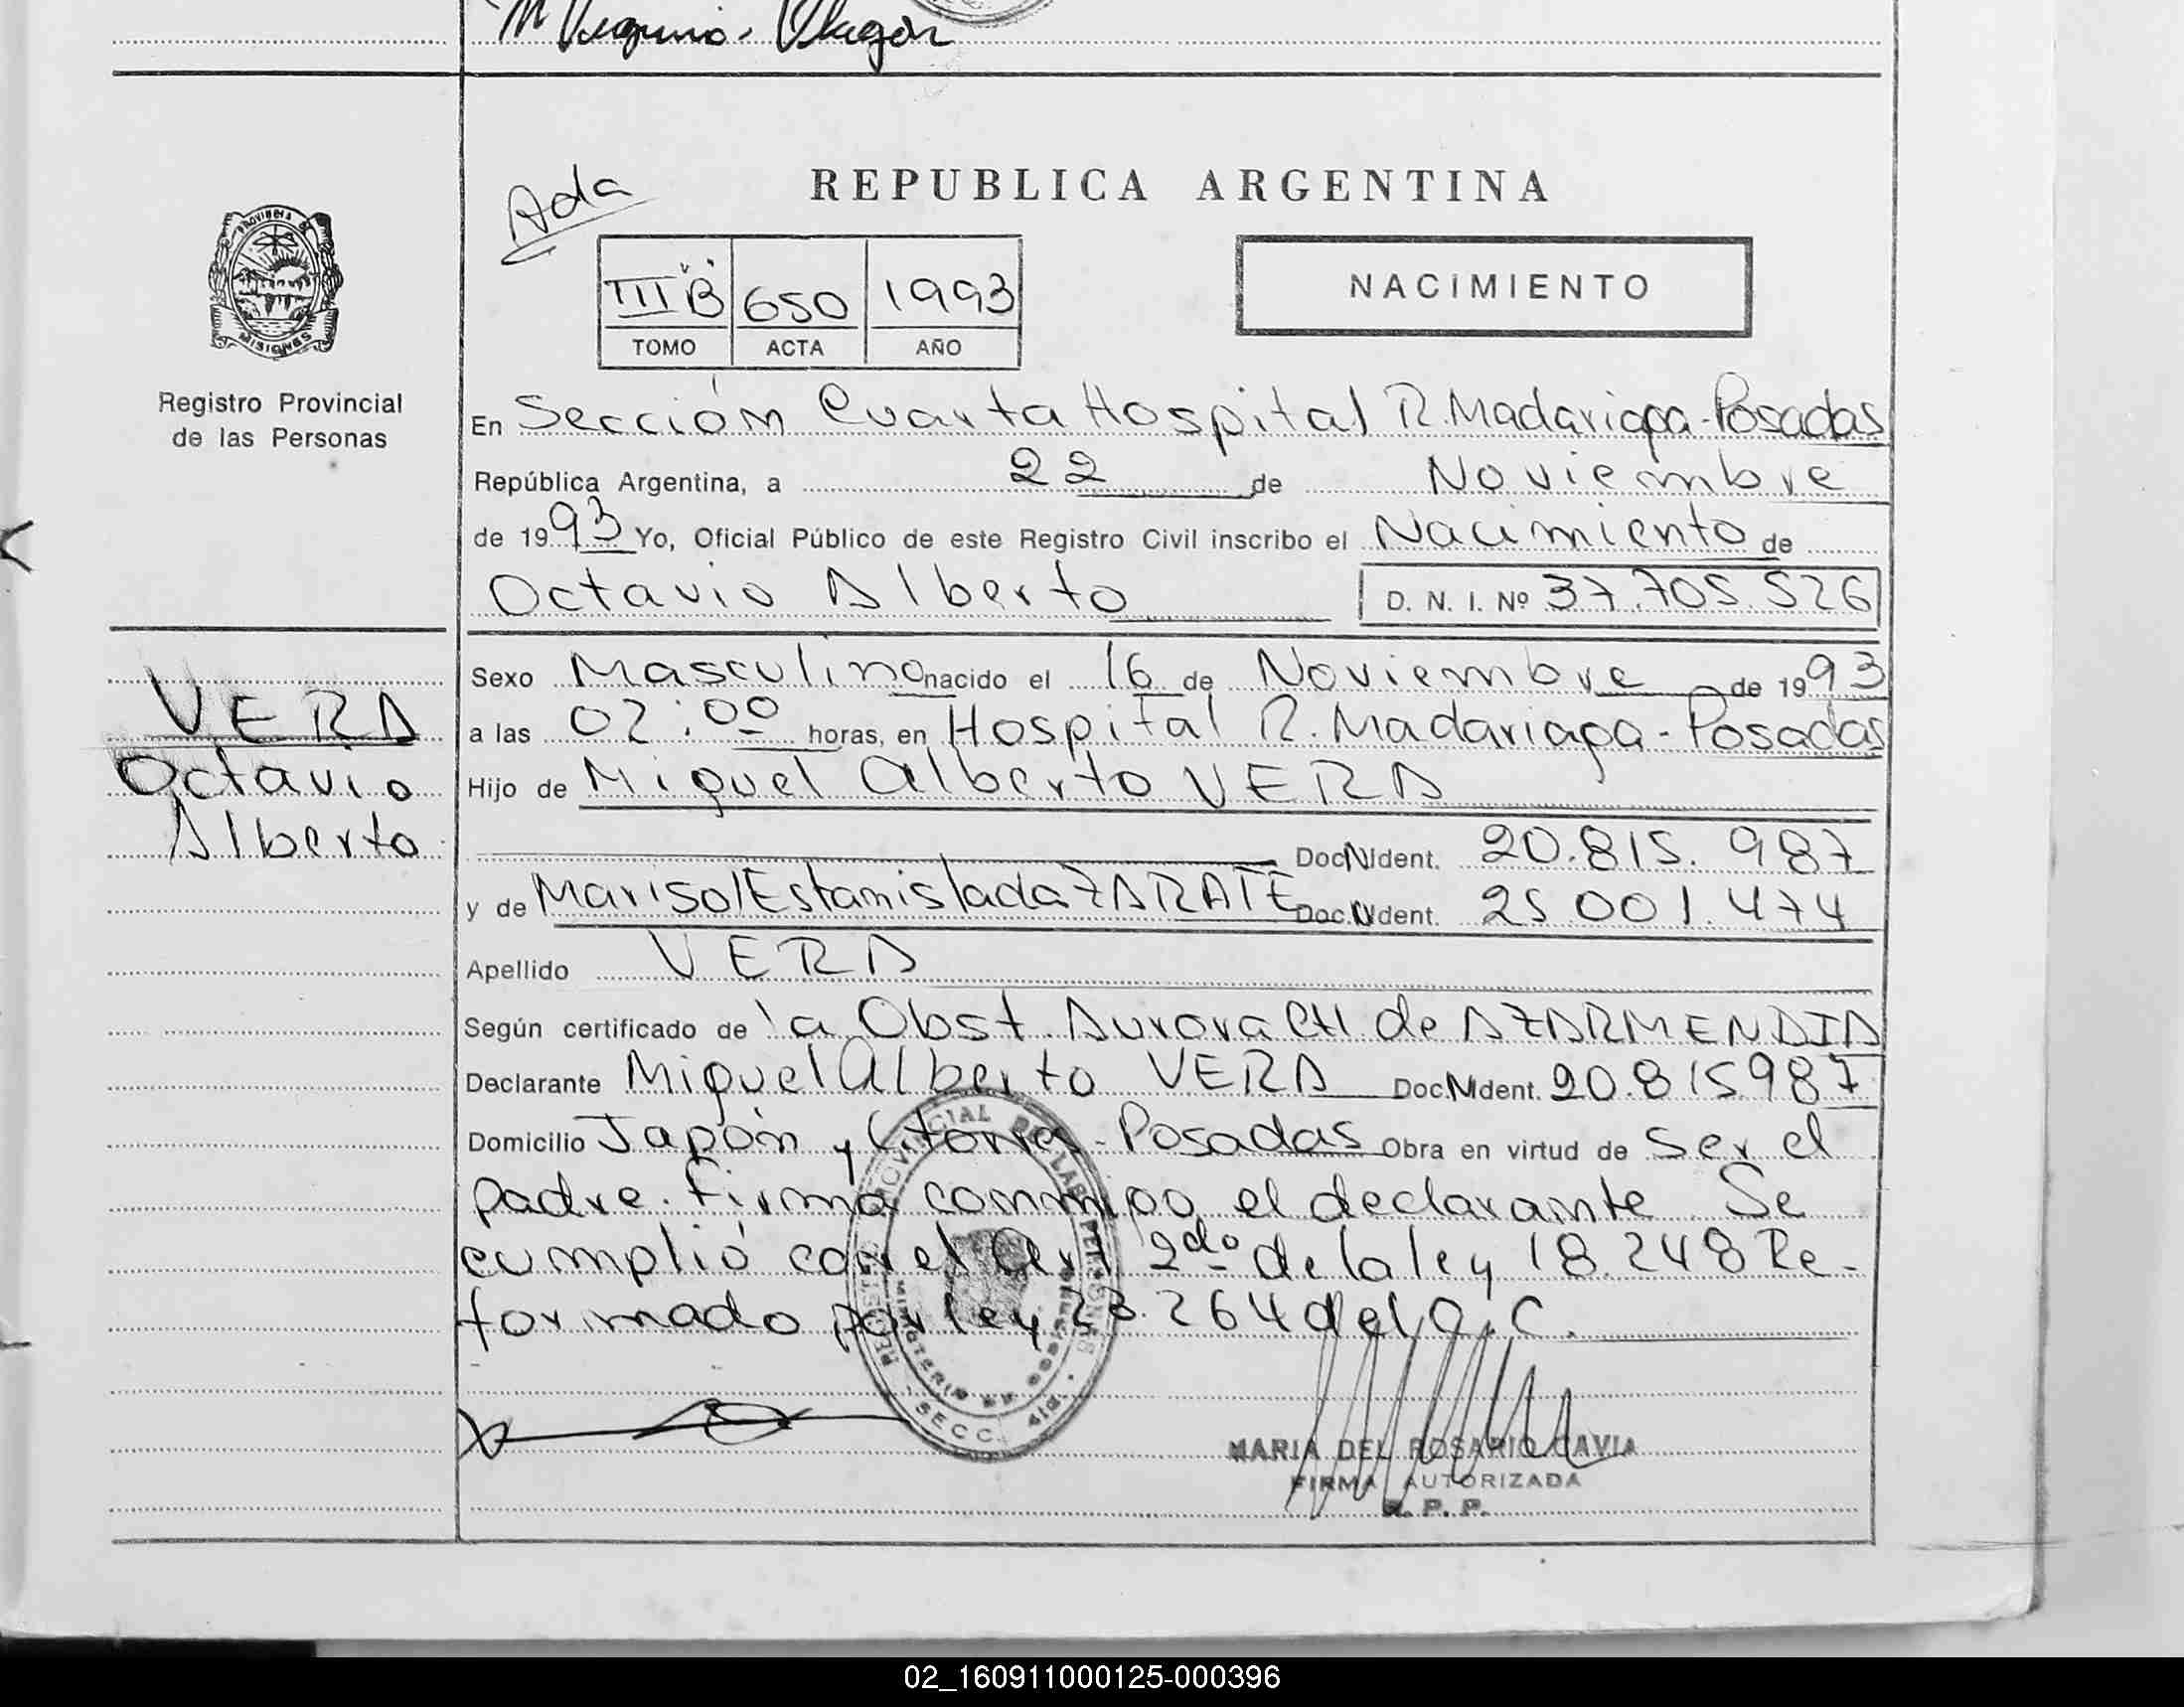 REPUBLICA ARGENTINA
Ada
PROVINCIA DE
MISIONES
Registro Provincial
de las Personas
III B 650 1993
TOMO ACTA AÑO
NACIMIENTO
En Sección Cuarta Hospital R. Madariaga - Posadas
República Argentina, a 22 de Noviembre
de 1993 Yo, Oficial Público de este Registro Civil inscribo el Nacimiento de
Octavio Alberto D. N. I. Nº 37.705.526
VERA
Octavio
Alberto
Sexo Masculino nacido el 16 de Noviembre de 1993
a las 02:00 horas, en Hospital R. Madariaga - Posadas
Hijo de Miguel Alberto VERA
Doc N Ident. 20.815.987
y de Marisol Estanislada ZARATE Doc. N Ident. 25.001.474
Apellido VERA
Según certificado de la Obst. Aurora de AZARMENDIA
Declarante Miguel Alberto VERA Doc. N Ident. 20.815987
Domicilio Japón y - Posadas Obra en virtud de Ser el
padre. Firma conmigo el declarante. Se
cumplió con el Art 2do de la ley 18.248 Re-
formado por ley 23.264 del C.C.
REGISTRO PROVINCIAL DE LAS PERSONAS
MINISTERIO DE GOBIERNO
SECC. 4ta.
MARIA DEL ROSARIO CAVIA
FIRMA AUTORIZADA
R. P. P.
02_160911000125-000396